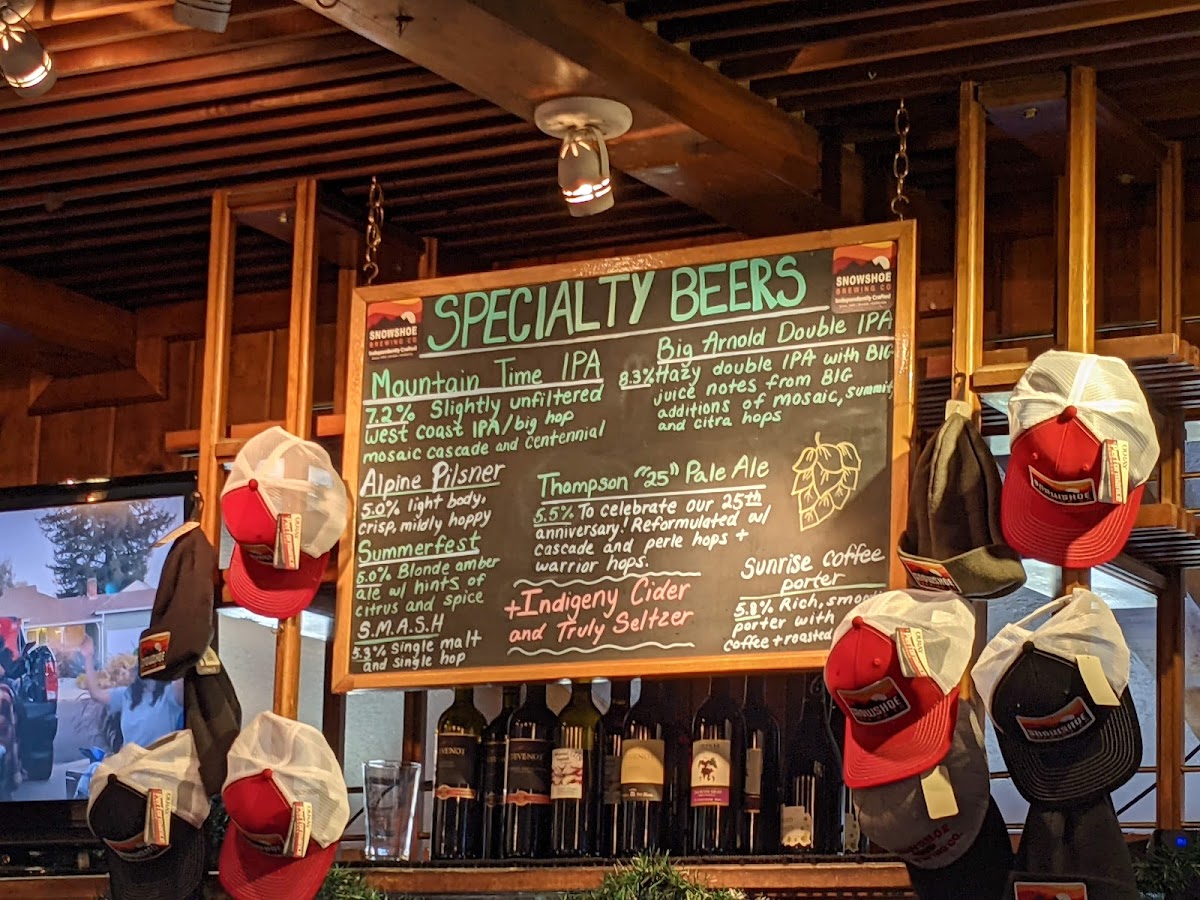 SPECIALTY BEERS
SNOWSHOE
BREWING CO
Independently Crafted
SNOWSHOE
BREWING CO
Independently Crafted
Mountain Time IPA
7.2% Slightly unfiltered
west coast IPA/big hop
mosaic cascade and centennial
Alpine Pilsner
5.0% light body,
crisp, mildly hoppy
Summerfest
5.0% Blonde amber
ale w/ hints of
citrus and spice
S.M.A.S.H
5.3% Single malt
and single hop
Big Arnold Double IPA
8.3% Hazy double IPA with BIG
juice notes from BIG
additions of mosaic, summit,
and citra hops
Thompson "25" Pale Ale
5.5% To celebrate our 25th
anniversary! Reformulated w/
cascade and perle hops +
warrior hops.
+Indigeny Cider
and Truly Seltzer
Sunrise Coffee
porter
5.8% Rich, smooth
porter with
coffee + roasted
SNOWSHOE
SNOWSHOE
SNOWSHOE